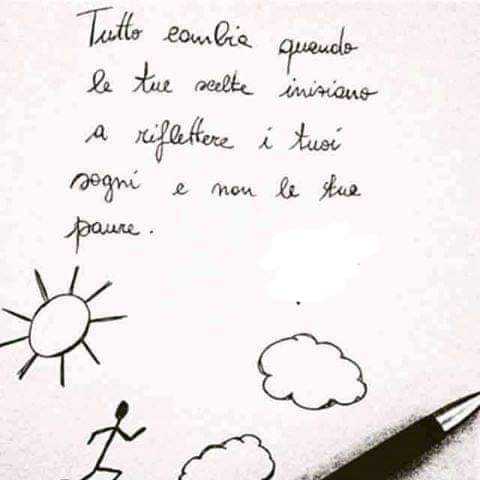 Tutto cambia quando
le tue scelte iniziano
a riflettere i tuoi
sogni e non le tue
paure.